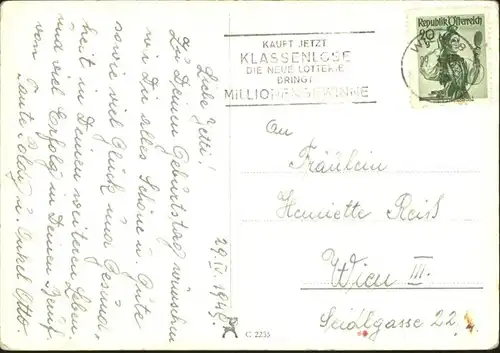 Liebe Jetti!
Zu Deinem Geburtstag wünschen
wir Dir alles Schöne u. Gute
sowie viel Glück und Gesund-
heit in Deinem weiteren Leben
und viel Erfolg in Deinem Beruf.
von Tante Poldy u. Onkel Otto.
29. IV. 194
KAUFT JETZT
KLASSENLOSE
DIE NEUE LOTTERIE
BRINGT
MILLIONENGEWINNE
20 Republik Österreich
WIEN
An
Fräulein
Henriette Reiß
Wien III.
Seidlgasse 22
C 2235